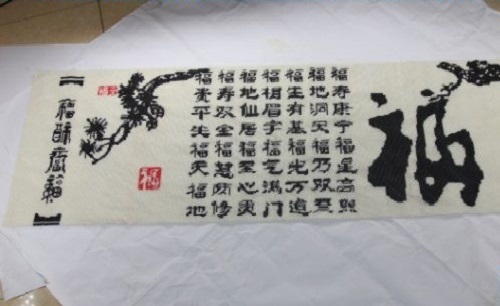 福
福寿康宁福星高照
福地洞天福乃双至
福生有基福光万道
福相眉宇福气满门
福地仙居福至心灵
福寿双全福慧双修
福贵平福天福地
福